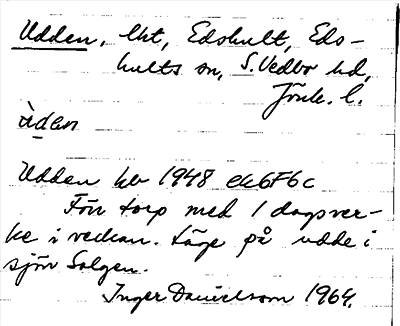 Udden, lht, Edshult, Eds-
hults sn, S. Vedbo hd,
Jönk. l.
ùden
Udden kb 1948 ek6F6c
Förr torp med 1 dagsver-
ke i veckan. Läge på udde i
sjön Solgen.
Inger Danielsson 1964.